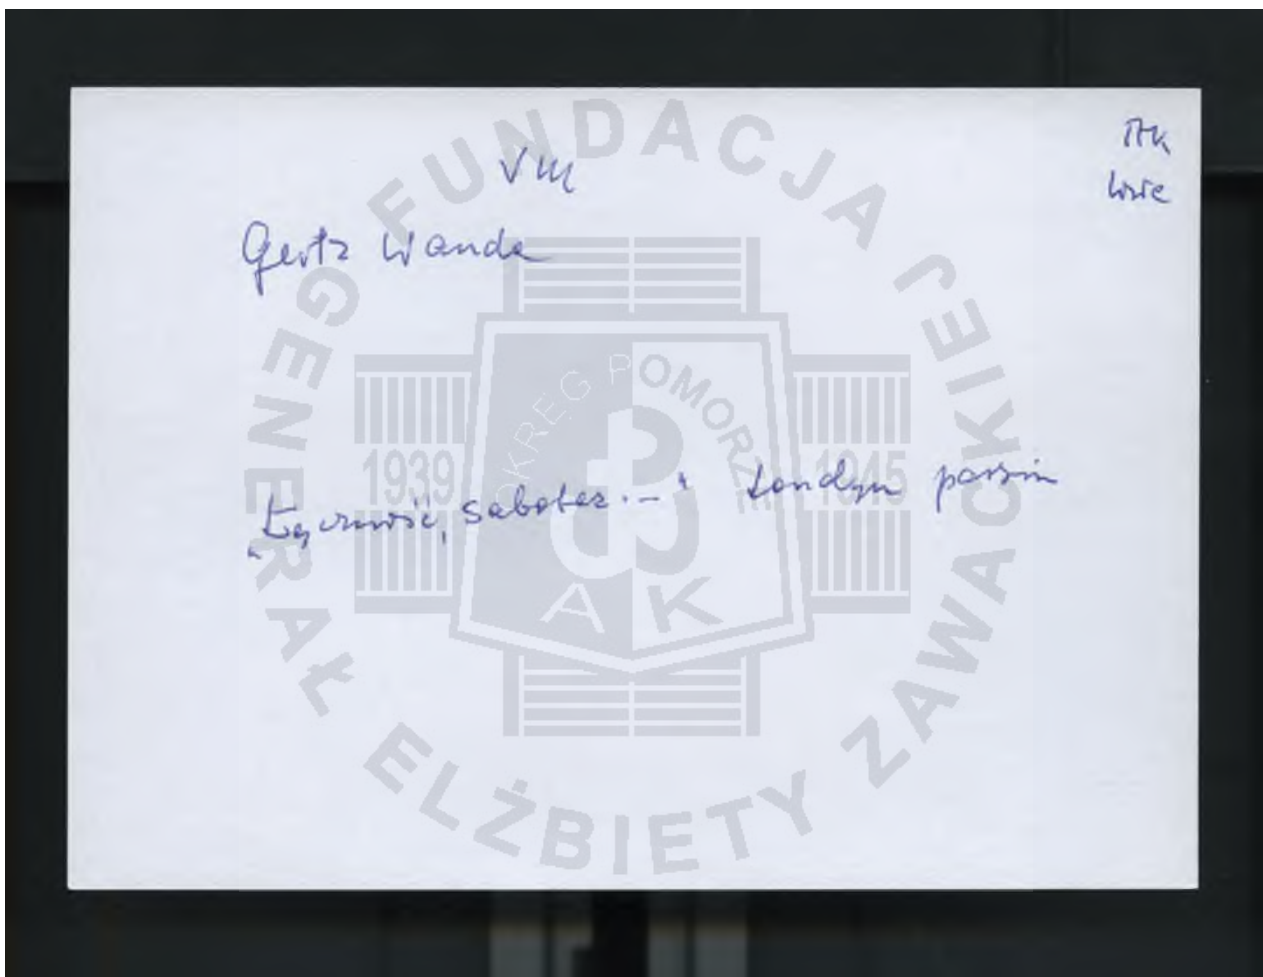 VM
AK
Gertz Wanda
„Łączność, sabotaż..." Londyn passim
FUNDACJA
GENERAŁ ELŻBIETY ZAWACKIEJ
OKRĘG POMORZE
1939
1945
AK